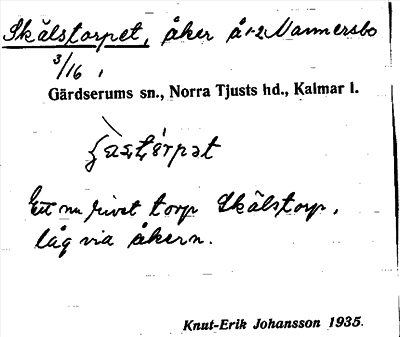 Skälstorpet, åker å 1-2 Mannersbo
3/16,
Gärdserums sn., Norra Tjusts hd., Kalmar l.
Ett nu rivet torp Skälstorp,
låg via åkern.
Knut-Erik Johansson 1935.